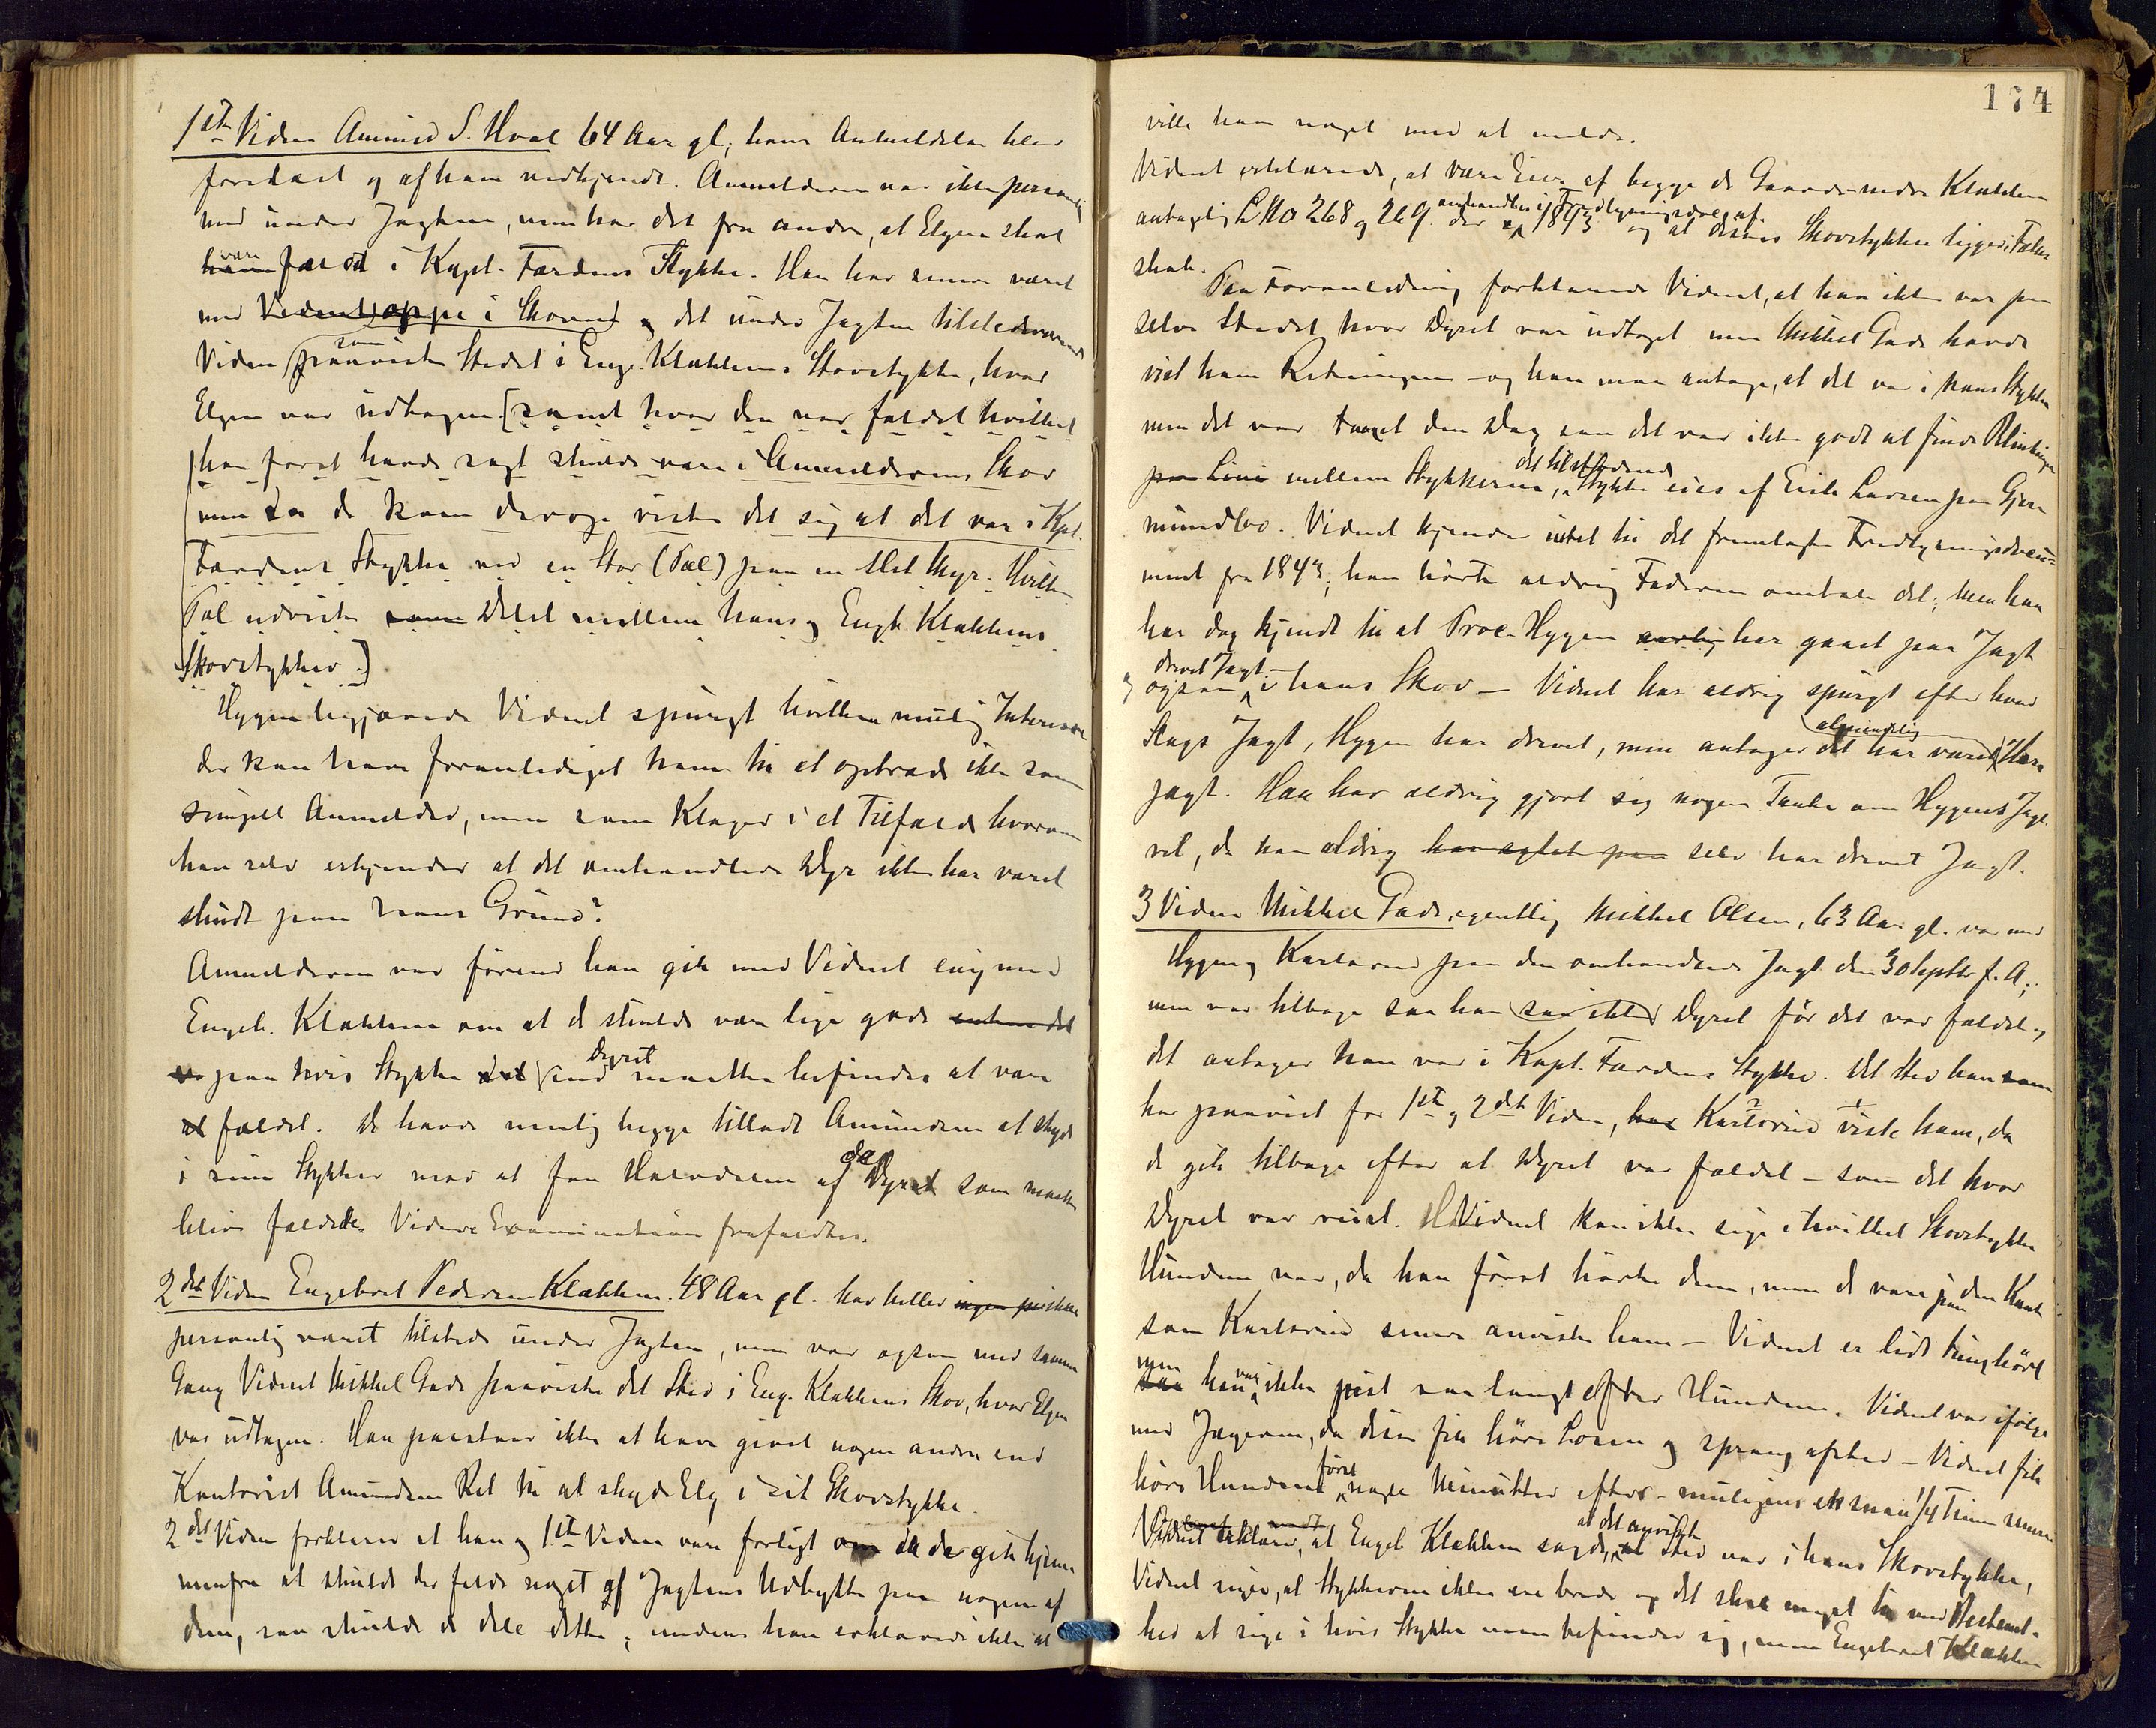 1ste Viden Amund S. Hval 64 Aar gl., hans Anmeldelse blev
forelæst og af ham vedkjendt. Anmelderen var ikke personlig
med under Jagten, men har det fra andre, at Elgen skal
være fældt i Kapt. Færdens Stykke. Han har senere været
med Vidnet oppe i Skoven og det under Jagten tilstedeværende
Viden som paaviste Stedet i Eng. Klækkens Skovstykke, hvor
Elgen var udtagen [samt hvor den var faldet hvilket
han først havde sagt skulde være i Anmelderens Skov
men da de kom derop viste det sig at det var i Kpt.
Færdens Stykke ved en Stor (Pæl) paa en slet Myr. Hvilken
Pæl udviste Delet mellem hans og Engb. Klækkens
Skovstykker.]
Hygen begjærede Vidnet spurgt hvilken mulig Interesse
der kan have foranlediget ham til at optræde ikke som
simpel Anmelder, men som Klager i et Tilfælde hvorom
han selv erkjender at det omhandlede Dyr ikke har været
skudt paa hans Grund?
Anmelderen var førend han gik med Vidnet enig med
Engeb. Klækken om at det skulde være lige godt enten det
var paa hvis Stykke det end Dyret maatte befindes at være
fældet. De havde nemlig begge tilladt Amundsen at skyde
i sine Stykker mod at faa Halvdelen af de Dyr som maatte
blive fældede. Videre Examination frafaldtes.
2det Viden Engebret Pedersen Klækken. 48 Aar gl. har heller
personlig været tilstede under Jagten, men var ogsaa med samme
Gang Vidnet Mikkel Gade paaviste det Sted i Eng. Klækkens Skov, hvor Elgen
var udtagen. Han paastaar ikke at have givet nogen anden end
Kontorist Amundsen Ret til at skyde Elg i sit Skovstykke.
2det Viden forklarer at han og 1ste Viden vare forligt om da de gik hjem-
menfra at skulde der falde noget af Jagtens Udbytte paa nogen af
dem, saa skulde de dele dette; medens han erklærede ikke at
174
ville have noget med at melde.
Vidnet erklærede, at være Eier af begge de Gaarde nedre Klækken
antagelig LNo 268 og 269 der omhandles i Fredlysningsdoc. af 1843 og at disses Skovstykker ligger i Fælles-
skab.
Paa Foranledning forklarede Vidnet, at han ikke var paa
selve Stedet hvor Dyret var udtaget men Mikkel Gade havde
vist ham Retningen – og han maa antage, at det var i hans Stykke
men det var taaget den Dag saa det var ikke godt at finde Blinkinger
paa Linie mellem Stykkerne, det tilstødende Stykke eies af Erik Larsen paa Gjer-
mundbo. Vidnet kjender intet til det fremlagte Fredlysningsdocu-
ment fra 1843; han hørte aldrig Faderen omtale det; men han
har dog kjendt til at Proc. Hygen har gaaet paa Jagt
og ogsaa drevet Jagt i hans Skov – Vidnet har aldrig spurgt efter hvad
Slags Jagt, Hygen har drevet, men antager det har været almindelig Hare-
jagt. Han har aldrig gjort sig nogen Tanke om Hygens Jagt-
ret, da han aldrig har agtet paa selv har drevet Jagt.
3 Viden Mikkel Gade, egentlig Mikkel Olsen, 63 Aar gl. var med
Hygen og Karlsrud paa den omhandlede Jagt den 30 Septbr f. A.;
men var tilbage saa han saa ikke Dyret før det var faldet og
det antager han var i Kapt. Færdens Stykke. Det Sted han som
har paavist for 1ste og 2det Viden, har Karlsrud viste ham, da
de gik tilbage efter at Dyret var faldet – som det hvor
Dyret var reist. Vidnet kan ikke sige i hvilket Skovstykke
Hundene var, da han først hørte dem, men de vare paa den Kant
som Karlsrud senere anviste ham – Vidnet er lidt tunghørt
men han var ikke just saa langt efter Hundene. Vidnet var i følge
med Jægerne, da disse fik høre Losen og sprang afsted – Vidnet fik
høre Hundene først nogle Minutter efter – muligens en snau 1/4 Time senere
Vidnet erklærer, at Engeb. Klækken sagde, at det anviste Sted var i hans Skovstykke,
Vidnet siger, at Stykkerne ikke ere brede og det skal meget til med Bestemt-
hed at sige i hvis Stykke man befinder sig, men Engebret Klækken